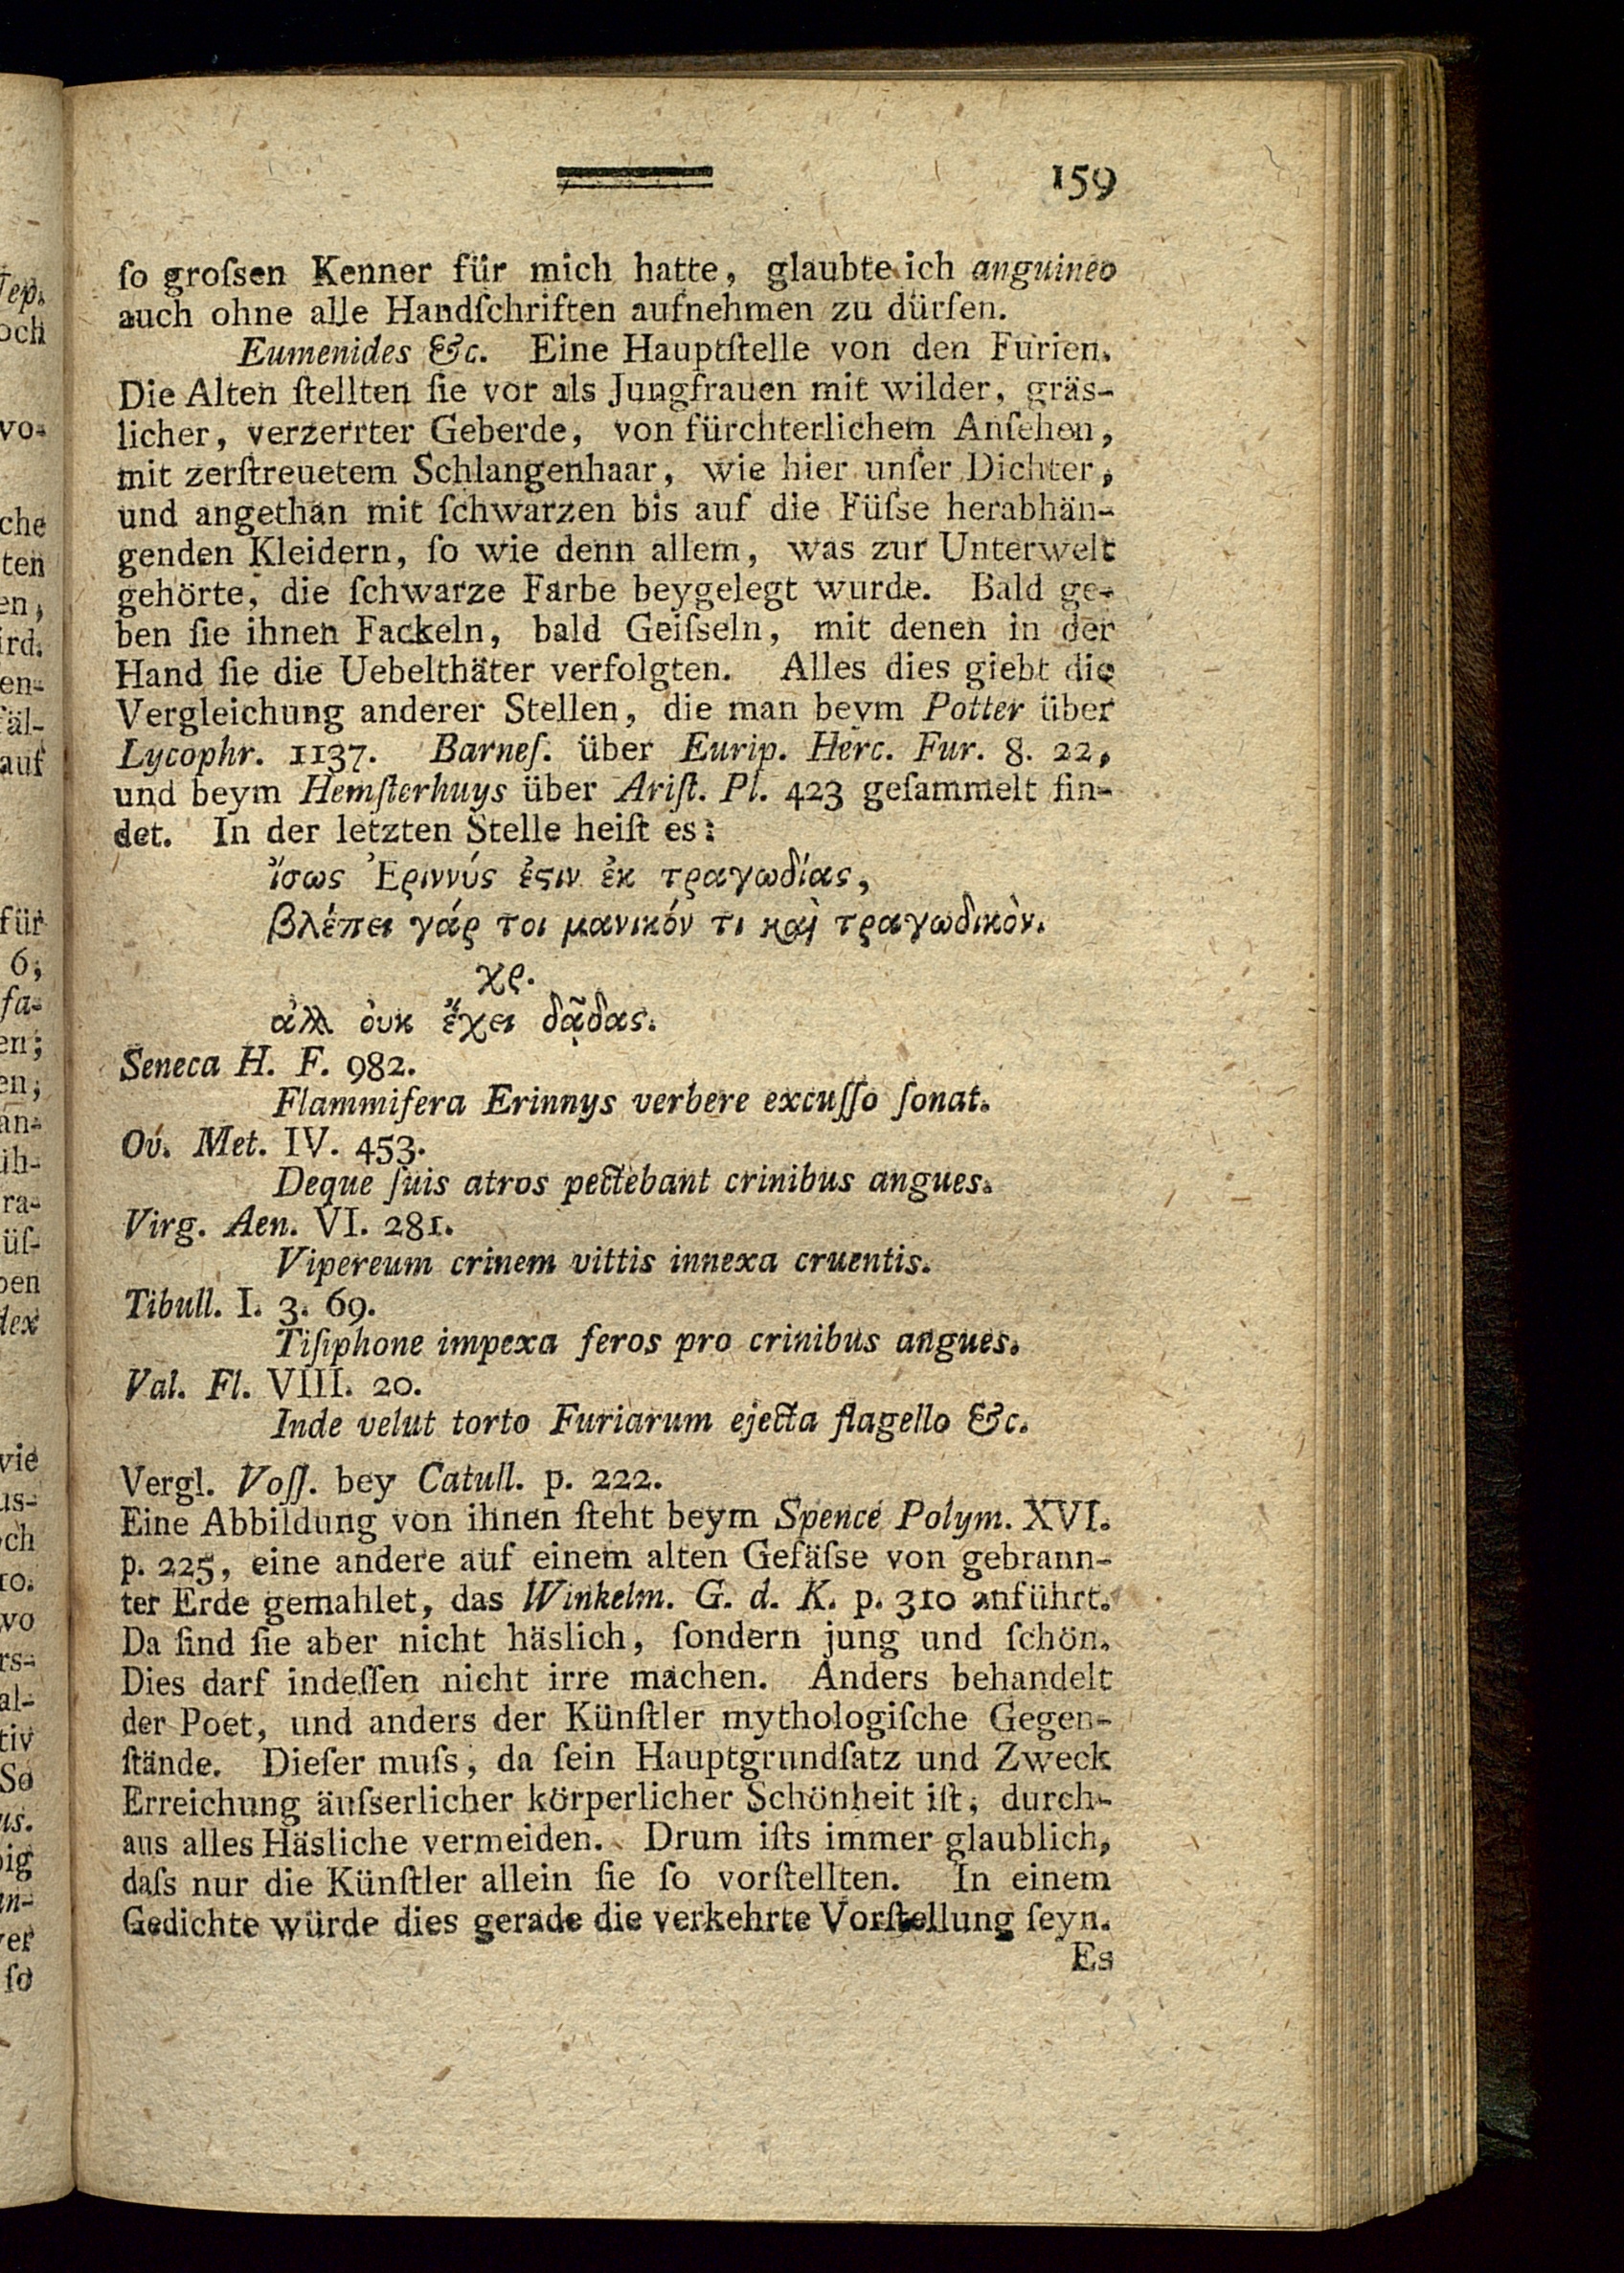 159
ſo groſsen Kenner für mich hatte, glaubte ich anguineo
auch ohne alle Handſchriften aufnehmen zu dürfen.
Eumenides &c. Eine Hauptſtelle von den Furien.
Die Alten ſtellten ſie vor als Jungfrauen mit wilder, gräs-
licher, verzerrter Geberde, von fürchterlichem Anſehen,
mit zerſtreuetem Schlangenhaar, wie hier unſer Dichter,
und angethan mit ſchwarzen bis auf die Füſse herabhän-
genden Kleidern, ſo wie denn allem, was zur Unterwelt
gehörte, die ſchwarze Farbe beygelegt wurde. Bald ge-
ben ſie ihnen Fackeln, bald Geiſseln, mit denen in der
Hand ſie die Uebelthäter verfolgten. Alles dies giebt die
Vergleichung anderer Stellen, die man beym Potter über
Lycophr. 1137. Barneſ. über Eurip. Herc. Fur. 8. 22,
und beym Hemſterhuys über Ariſt. Pl. 423 geſammelt fin-
det. In der letzten Stelle heiſt es:
ἴσως Ἐριννύς ἐϛιν ἐκ τραγωδίας,
βλέπει γάρ τοι μανικόν τι καὶ τραγωδικὸν.
χρ.
ἀλλ ὀυκ ἔχει δᾷδας.
Seneca H. F. 982.
Flammifera Erinnys verbere excuſſo ſonat.
Ov. Met. IV. 453.
Deque ſuis atros pectebant crinibus angues.
Virg. Aen. VI. 281.
Vipereum crinem vittis innexa cruentis.
Tibull. I. 3. 69.
Tiſiphone impexa feros pro crinibus angues.
Val. Fl. VIII. 20.
Inde velut torto Furiarum ejecta flagello &c.
Vergl. Voſſ. bey Catull. p. 222.
Eine Abbildung von ihnen ſteht beym Spence Polym. XVI.
p. 225, eine andere auf einem alten Gefäſse von gebrann-
ter Erde gemahlet, das Winkelm. G. d. K. p. 310 anführt.
Da ſind ſie aber nicht häslich, ſondern jung und ſchön.
Dies darf indeſſen nicht irre machen. Anders behandelt
der Poet, und anders der Künſtler mythologiſche Gegen-
ſtände. Dieſer muſs, da ſein Hauptgrundſatz und Zweck
Erreichung äuſserlicher körperlicher Schönheit iſt, durch-
aus alles Häsliche vermeiden. Drum iſts immer glaublich,
daſs nur die Künſtler allein ſie ſo vorſtellten. In einem
Gedichte würde dies gerade die verkehrte Vorſtellung ſeyn.
Es